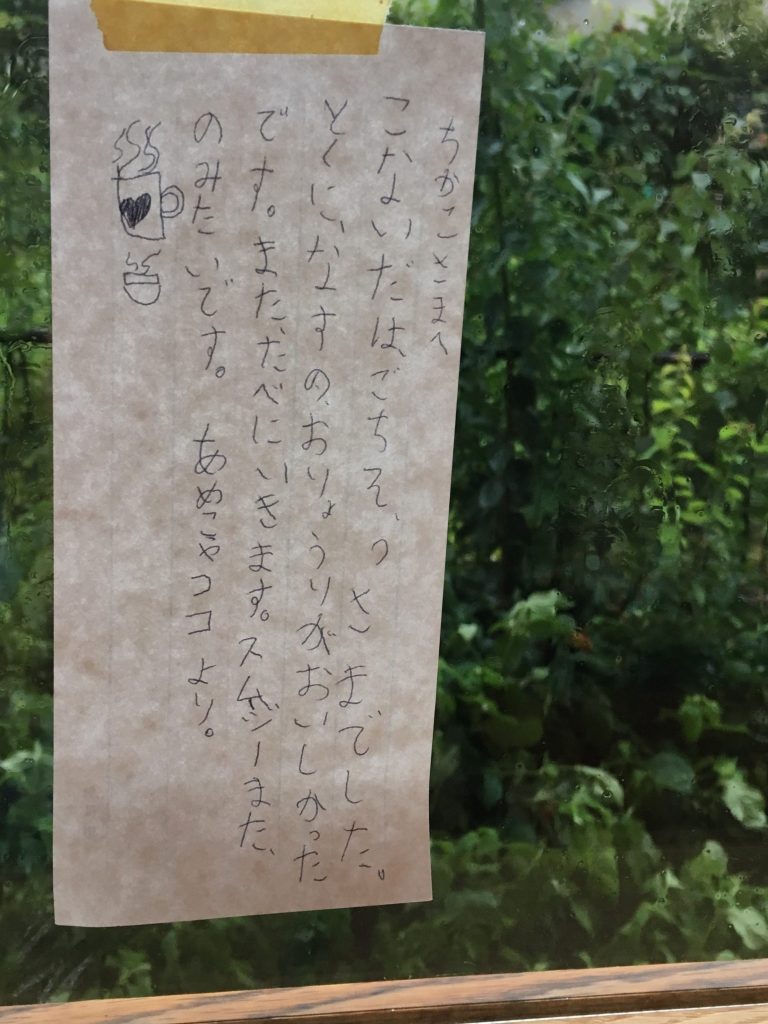 ちかこさまへ
こないだは、ごちそうさまでした。
とくに、なすの、おりょうりがおいしかった
です。また、たべにいきます。スムージーまた、
のみたいです。 あめっこ ココより。